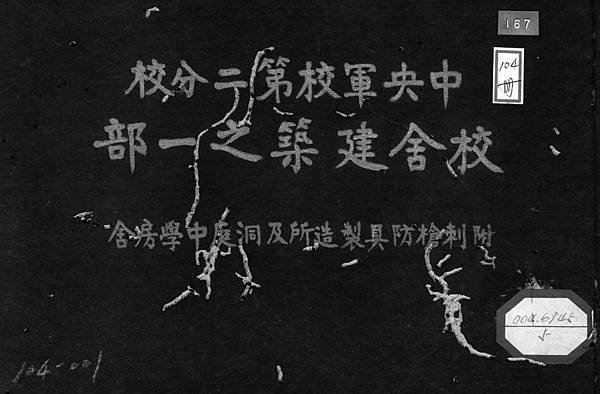 167
104
中央軍校第二分校
校舍建築之一部
附刺槍防具製造所及洞庭中學房舍
004.6945
5
104-001